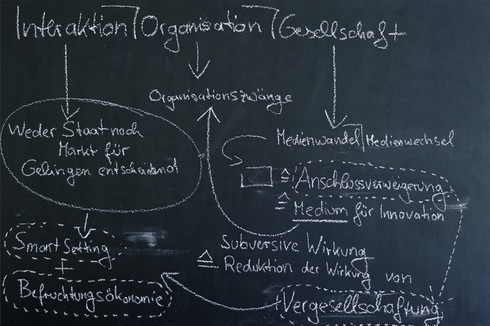 Interaktion / Organisation / Gesellschaft
Organisationszwänge
Weder Staat noch
Markt für
Gelingen entscheidend
Medienwandel | Medienwechsel
≙ Anschlussverweigerung
≙ Medium für Innovation
Smart Setting
+
Befruchtungsökonomie
≙ Subversive Wirkung
Reduktion der Wirkung von
Vergesellschaftung